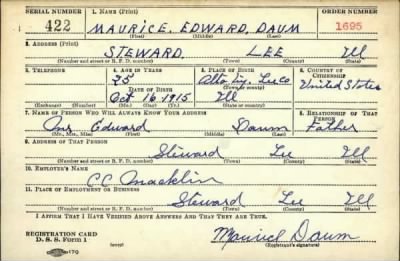 SERIAL NUMBER 1. NAME (Print) ORDER NUMBER
422 MAURICE. EDWARD. DAUM 1695
(First) (Middle) (Last)
2. ADDRESS (Print)
STEWARD. LEE Ill
(Number and street or R. F. D. number) (Town) (County) (State)
3. TELEPHONE 4. AGE IN YEARS 5. PLACE OF BIRTH 6. COUNTRY OF CITIZENSHIP
25 Alto Twp. Lee Co United States
DATE OF BIRTH (Town or county)
Oct 16 1915 Ill
(Exchange) (Number) (Mo.) (Day) (Yr.) (State or country)
7. NAME OF PERSON WHO WILL ALWAYS KNOW YOUR ADDRESS 8. RELATIONSHIP OF THAT PERSON
Mr Edward Daum Father
(Mr., Mrs., Miss) (First) (Middle) (Last)
9. ADDRESS OF THAT PERSON
Steward Lee Ill
(Number and street or R. F. D. number) (Town) (County) (State)
10. EMPLOYER'S NAME
CC Macklin
11. PLACE OF EMPLOYMENT OR BUSINESS
Steward Lee Ill
(Number and street or R. F. D. number) (Town) (County) (State)
I AFFIRM THAT I HAVE VERIFIED ABOVE ANSWERS AND THAT THEY ARE TRUE.
REGISTRATION CARD
D. S. S. Form 1 (over) Maurice Daum
(Registrant's signature)